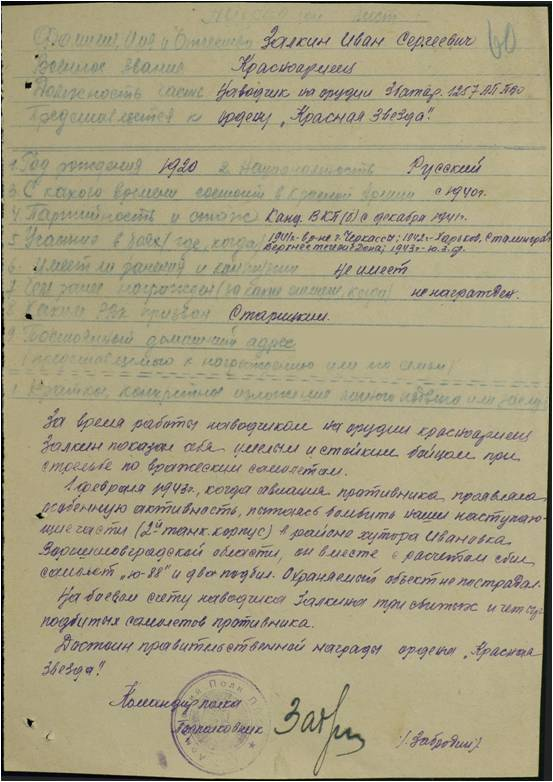 Наградной лист
60
Фамилия, Имя и Отчество Залкин Иван Сергеевич
Военное звание Красноармеец
Должность часть Наводчик на орудии 3 батар. 1257 АП ПВО
Представляется к ордену „Красная Звезда".
1. Год рождения 1920 2. Национальность Русский
3. С какого времени состоит в Красной Армии с 1940г.
4. Партийность и стаж Канд. ВКП(б) с декабря 1941г.
5. Участие в боях (где, когда) 1941г. г. Черкассы; 1942г. Харьков, Сталинград
Дона; 1943г. Ю.З.Ф.
6. Имеет ли ранения и контузии Не имеет
7. Чем ранее награжден (за какие отличия, когда) не награжден.
8. Каким РВК призван Старицким.
9. Постоянный домашний адрес
(представляемого к награждению или его семьи)
Краткое, конкретное изложение личного подвига или заслуг
За время работы наводчиком на орудии красноармеец
Залкин показал себя умелым и стойким бойцом при
стрельбе по вражеским самолетам.
1 февраля 1943г., когда авиация противника проявляла
особенную активность, пытаясь бомбить наши наступаю-
щие части (2й танк. корпус) в районе хутора Ивановка
Ворошиловградской области, он вместе с расчетом сбил
самолет „Ю-88" и два подбил. Охраняемый объект не пострадал.
На боевом счету наводчика Залкина три сбитых и четыре
подбитых самолетов противника.
Достоин правительственной награды ордена „Красная
Звезда".
Командир полка
Подполковник
/Забродин/